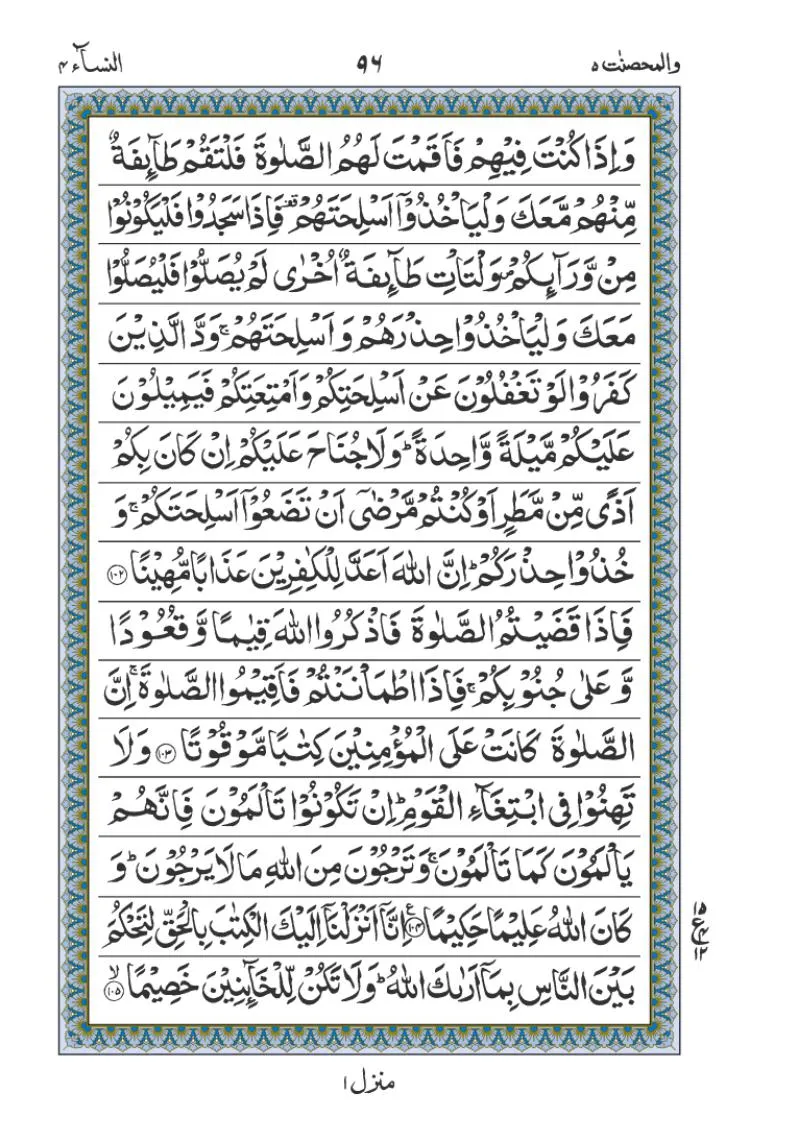 والمحصنٰت ۵ ۹۶ النسآء ۴
وَاِذَا كُنْتَ فِيْهِمْ فَاَقَمْتَ لَهُمُ الصَّلٰوةَ فَلْتَقُمْ طَآىِٕفَةٌ
مِّنْهُمْ مَّعَكَ وَلْيَاْخُذُوْۤا اَسْلِحَتَهُمْ۫ فَاِذَا سَجَدُوْا فَلْيَكُوْنُوْا
مِنْ وَّرَآىِٕكُمْ۪ وَلْتَاْتِ طَآىِٕفَةٌ اُخْرٰى لَمْ يُصَلُّوْا فَلْيُصَلُّوْا
مَعَكَ وَلْيَاْخُذُوْا حِذْرَهُمْ وَاَسْلِحَتَهُمْ ۚ وَدَّ الَّذِيْنَ
كَفَرُوْا لَوْ تَغْفُلُوْنَ عَنْ اَسْلِحَتِكُمْ وَاَمْتِعَتِكُمْ فَيَمِيْلُوْنَ
عَلَيْكُمْ مَّيْلَةً وَّاحِدَةً ؕ وَلَا جُنَاحَ عَلَيْكُمْ اِنْ كَانَ بِكُمْ
اَذًى مِّنْ مَّطَرٍ اَوْ كُنْتُمْ مَّرْضٰۤى اَنْ تَضَعُوْۤا اَسْلِحَتَكُمْ ۚ وَ
خُذُوْا حِذْرَكُمْ ؕ اِنَّ اللّٰهَ اَعَدَّ لِلْكٰفِرِيْنَ عَذَابًا مُّهِيْنًا ۝۱۰۲
فَاِذَا قَضَيْتُمُ الصَّلٰوةَ فَاذْكُرُوا اللّٰهَ قِيٰمًا وَّقُعُوْدًا
وَّعَلٰى جُنُوْبِكُمْ ۚ فَاِذَا اطْمَاْنَنْتُمْ فَاَقِيْمُوا الصَّلٰوةَ ۚ اِنَّ
الصَّلٰوةَ كَانَتْ عَلَى الْمُؤْمِنِيْنَ كِتٰبًا مَّوْقُوْتًا ۝۱۰۳ وَلَا
تَهِنُوْا فِى ابْتِغَآءِ الْقَوْمِ ؕ اِنْ تَكُوْنُوْا تَاْلَمُوْنَ فَاِنَّهُمْ
يَاْلَمُوْنَ كَمَا تَاْلَمُوْنَ ۚ وَتَرْجُوْنَ مِنَ اللّٰهِ مَا لَا يَرْجُوْنَ ؕ وَ
كَانَ اللّٰهُ عَلِيْمًا حَكِيْمًا ۝۱۰۴ؑ اِنَّاۤ اَنْزَلْنَاۤ اِلَيْكَ الْكِتٰبَ بِالْحَقِّ لِتَحْكُمَ
۱۵ ع ۴ ۱۲
بَيْنَ النَّاسِ بِمَاۤ اَرٰىكَ اللّٰهُ ؕ وَلَا تَكُنْ لِّلْخَآىِٕنِيْنَ خَصِيْمًا ۝۱۰۵ۙ
منزل ۱